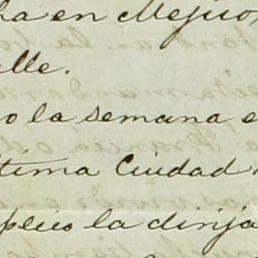 ha en Mejico,
lle.
o la semana e
tima Ciudad
plico la dirija